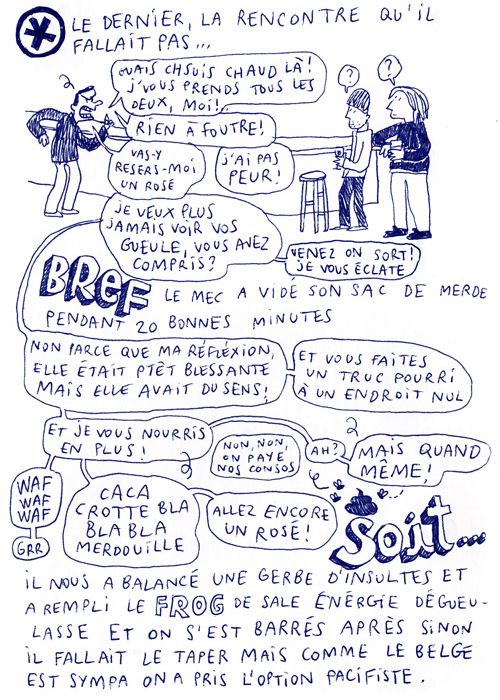 LE DERNIER, LA RENCONTRE QU'IL
FALLAIT PAS...
OUAIS CHSUIS CHAUD LÀ!
J'VOUS PRENDS TOUS LES
DEUX, MOI!
RIEN À FOUTRE!
VAS-Y
RESERS-MOI
UN ROSÉ
J'AI PAS
PEUR!
?
?
JE VEUX PLUS
JAMAIS VOIR VOS
GUEULE, VOUS AVEZ
COMPRIS?
VENEZ ON SORT!
JE VOUS ÉCLATE
BREF LE MEC A VIDÉ SON SAC DE MERDE
PENDANT 20 BONNES MINUTES
NON PARCE QUE MA RÉFLÉXION,
ELLE ÉTAIT PTÊT BLESSANTE
MAIS ELLE AVAIT DU SENS!
ET VOUS FAITES
UN TRUC POURRI
À UN ENDROIT NUL
ET JE VOUS NOURRIS
EN PLUS!
NON, NON,
ON PAYE
NOS CONSOS
AH?
MAIS QUAND
MÊME!
WAF
WAF
WAF
GRR
CACA
CROTTE BLA
BLA BLA
MERDOUILLE
ALLEZ ENCORE
UN ROSÉ!
SOIT...
IL NOUS A BALANCÉ UNE GERBE D'INSULTES ET
A REMPLI LE FROG DE SALE ÉNERGIE DÉGUEU-
LASSE ET ON S'EST BARRÉS APRÈS SINON
IL FALLAIT LE TAPER MAIS COMME LE BELGE
EST SYMPA ON A PRIS L'OPTION PACIFISTE.